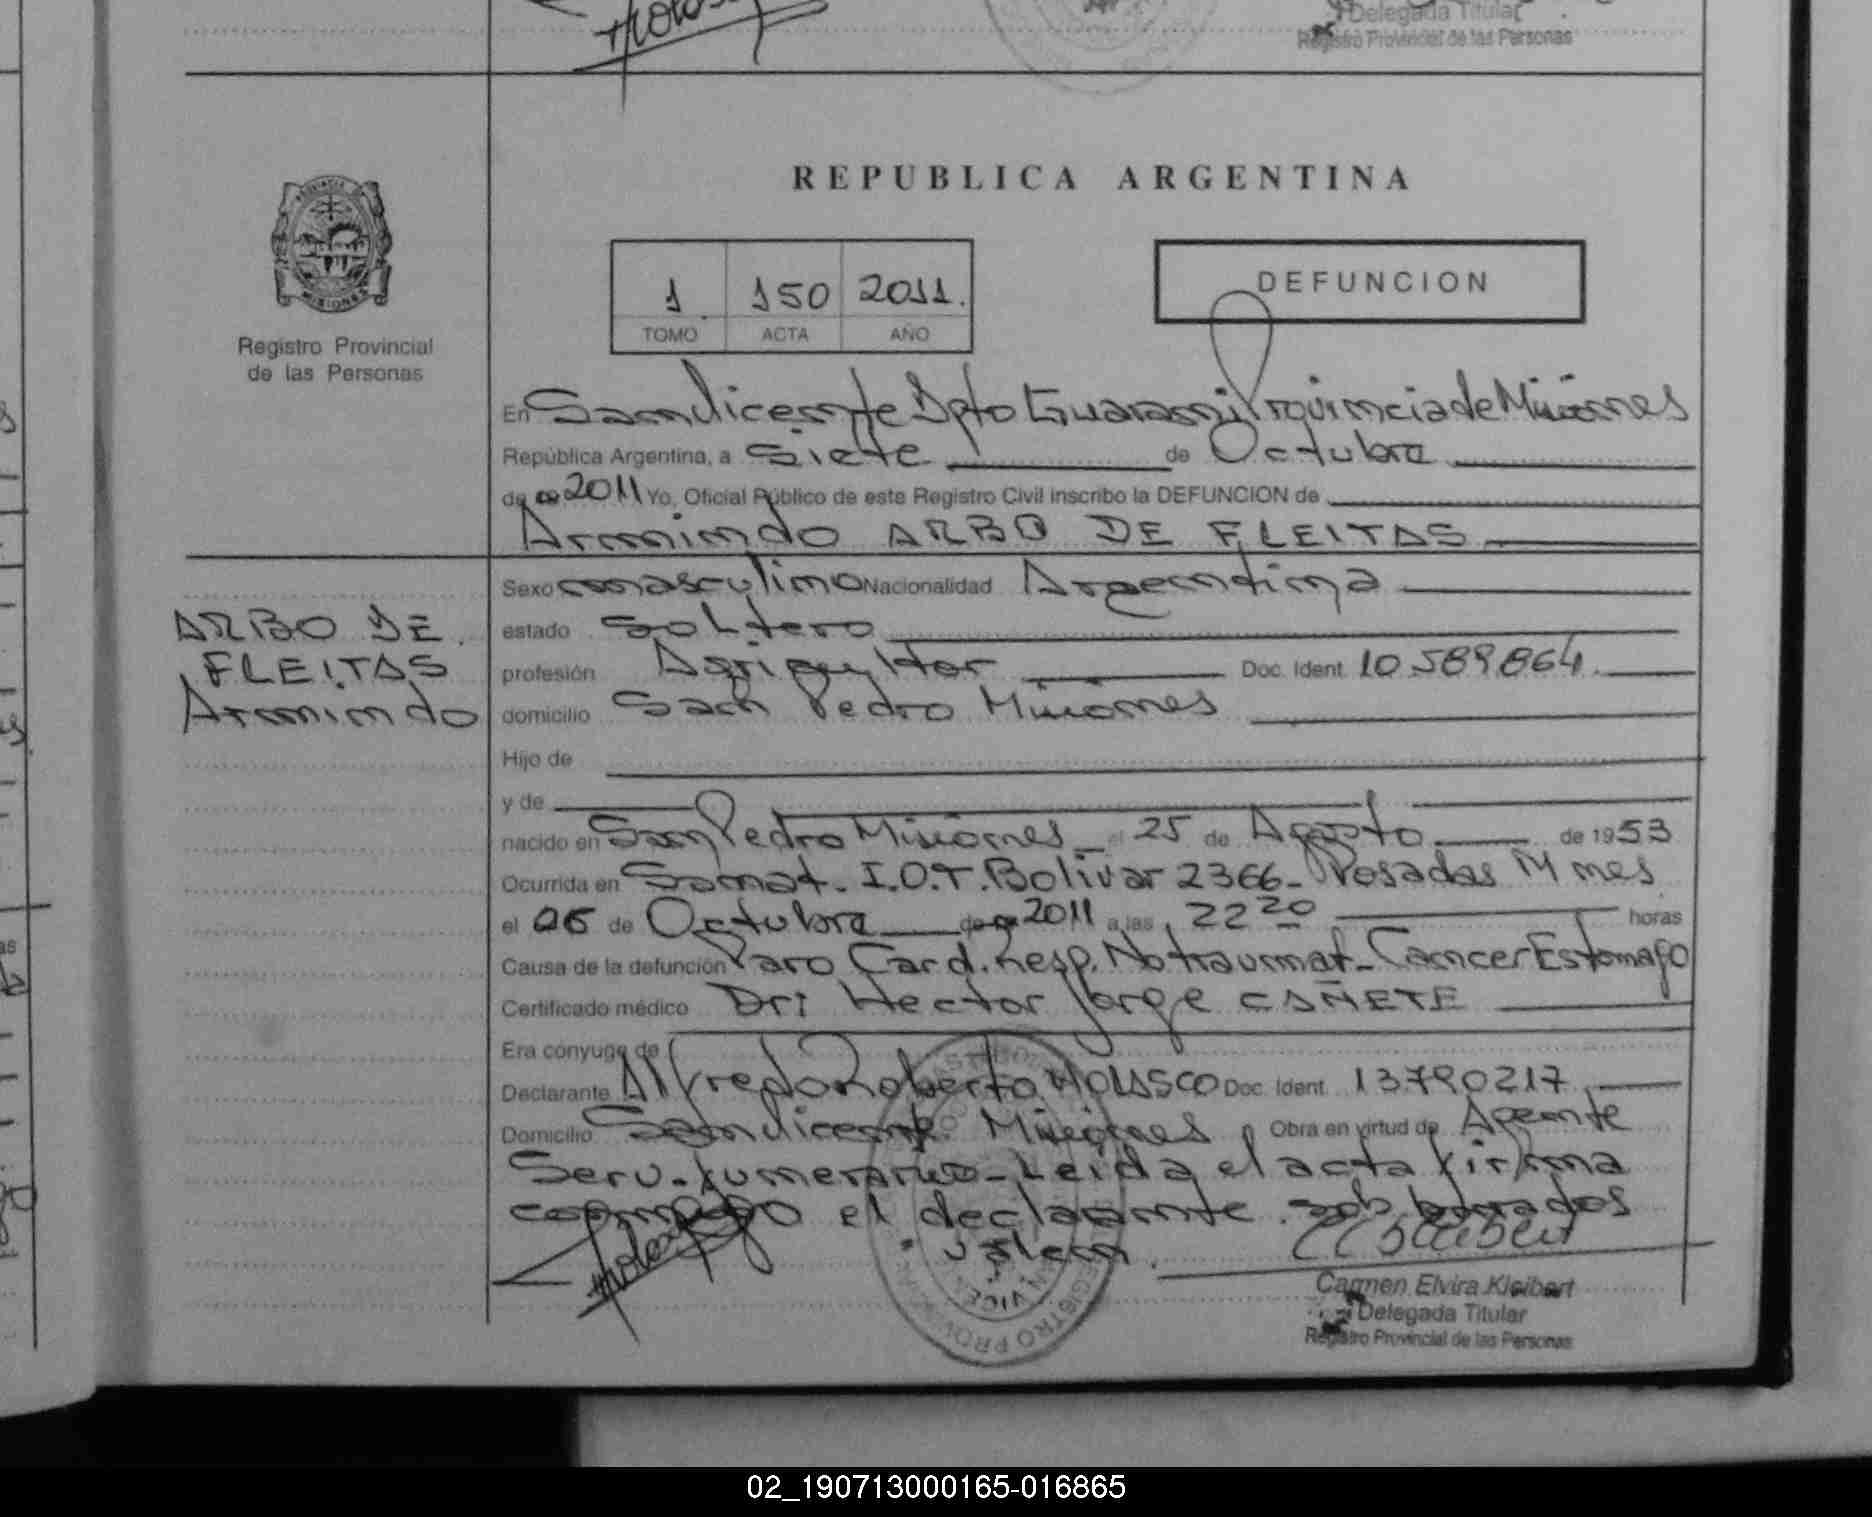 Delegada Titular
Registro Provincial de las Personas
REPUBLICA ARGENTINA
PROVINCIA DE
MISIONES
Registro Provincial
de las Personas
1 150 2011.
TOMO ACTA AÑO
DEFUNCION
En San Vicente Dpto Guarani Provincia de Misiones
República Argentina, a Siete de Octubre
de 2011 Yo, Oficial Público de este Registro Civil inscribo la DEFUNCION de
Armindo ARBO DE FLEITAS
Sexo masculino Nacionalidad Argentina
ARBO DE
FLEITAS
Armindo
estado Soltero
profesión Agricultor Doc. Ident. 10.589.864.
domicilio San Pedro Misiones
Hijo de
y de
nacido en San Pedro Misiones el 25 de Agosto de 1953
Ocurrida en Sanat. I.O.T. Bolivar 2366- Posadas Mnes
el 06 de Octubre de 2011 a las 22 20 horas
Causa de la defunción Paro Card. Resp. No traumat- Cancer Estomago
Certificado médico Dr: Hector Jorge CAÑETE
Era conyuge de
Declarante Alfredo Roberto MOLASCO Doc. Ident. 13790217
Domicilio San Vicente Misiones Obra en virtud de Agente
Serv. funerario- Leida el acta firma
conmigo el declarante. sob. borrados
valen.
Carmen Elvira Kleibert
Delegada Titular
Registro Provincial de las Personas
02_190713000165-016865